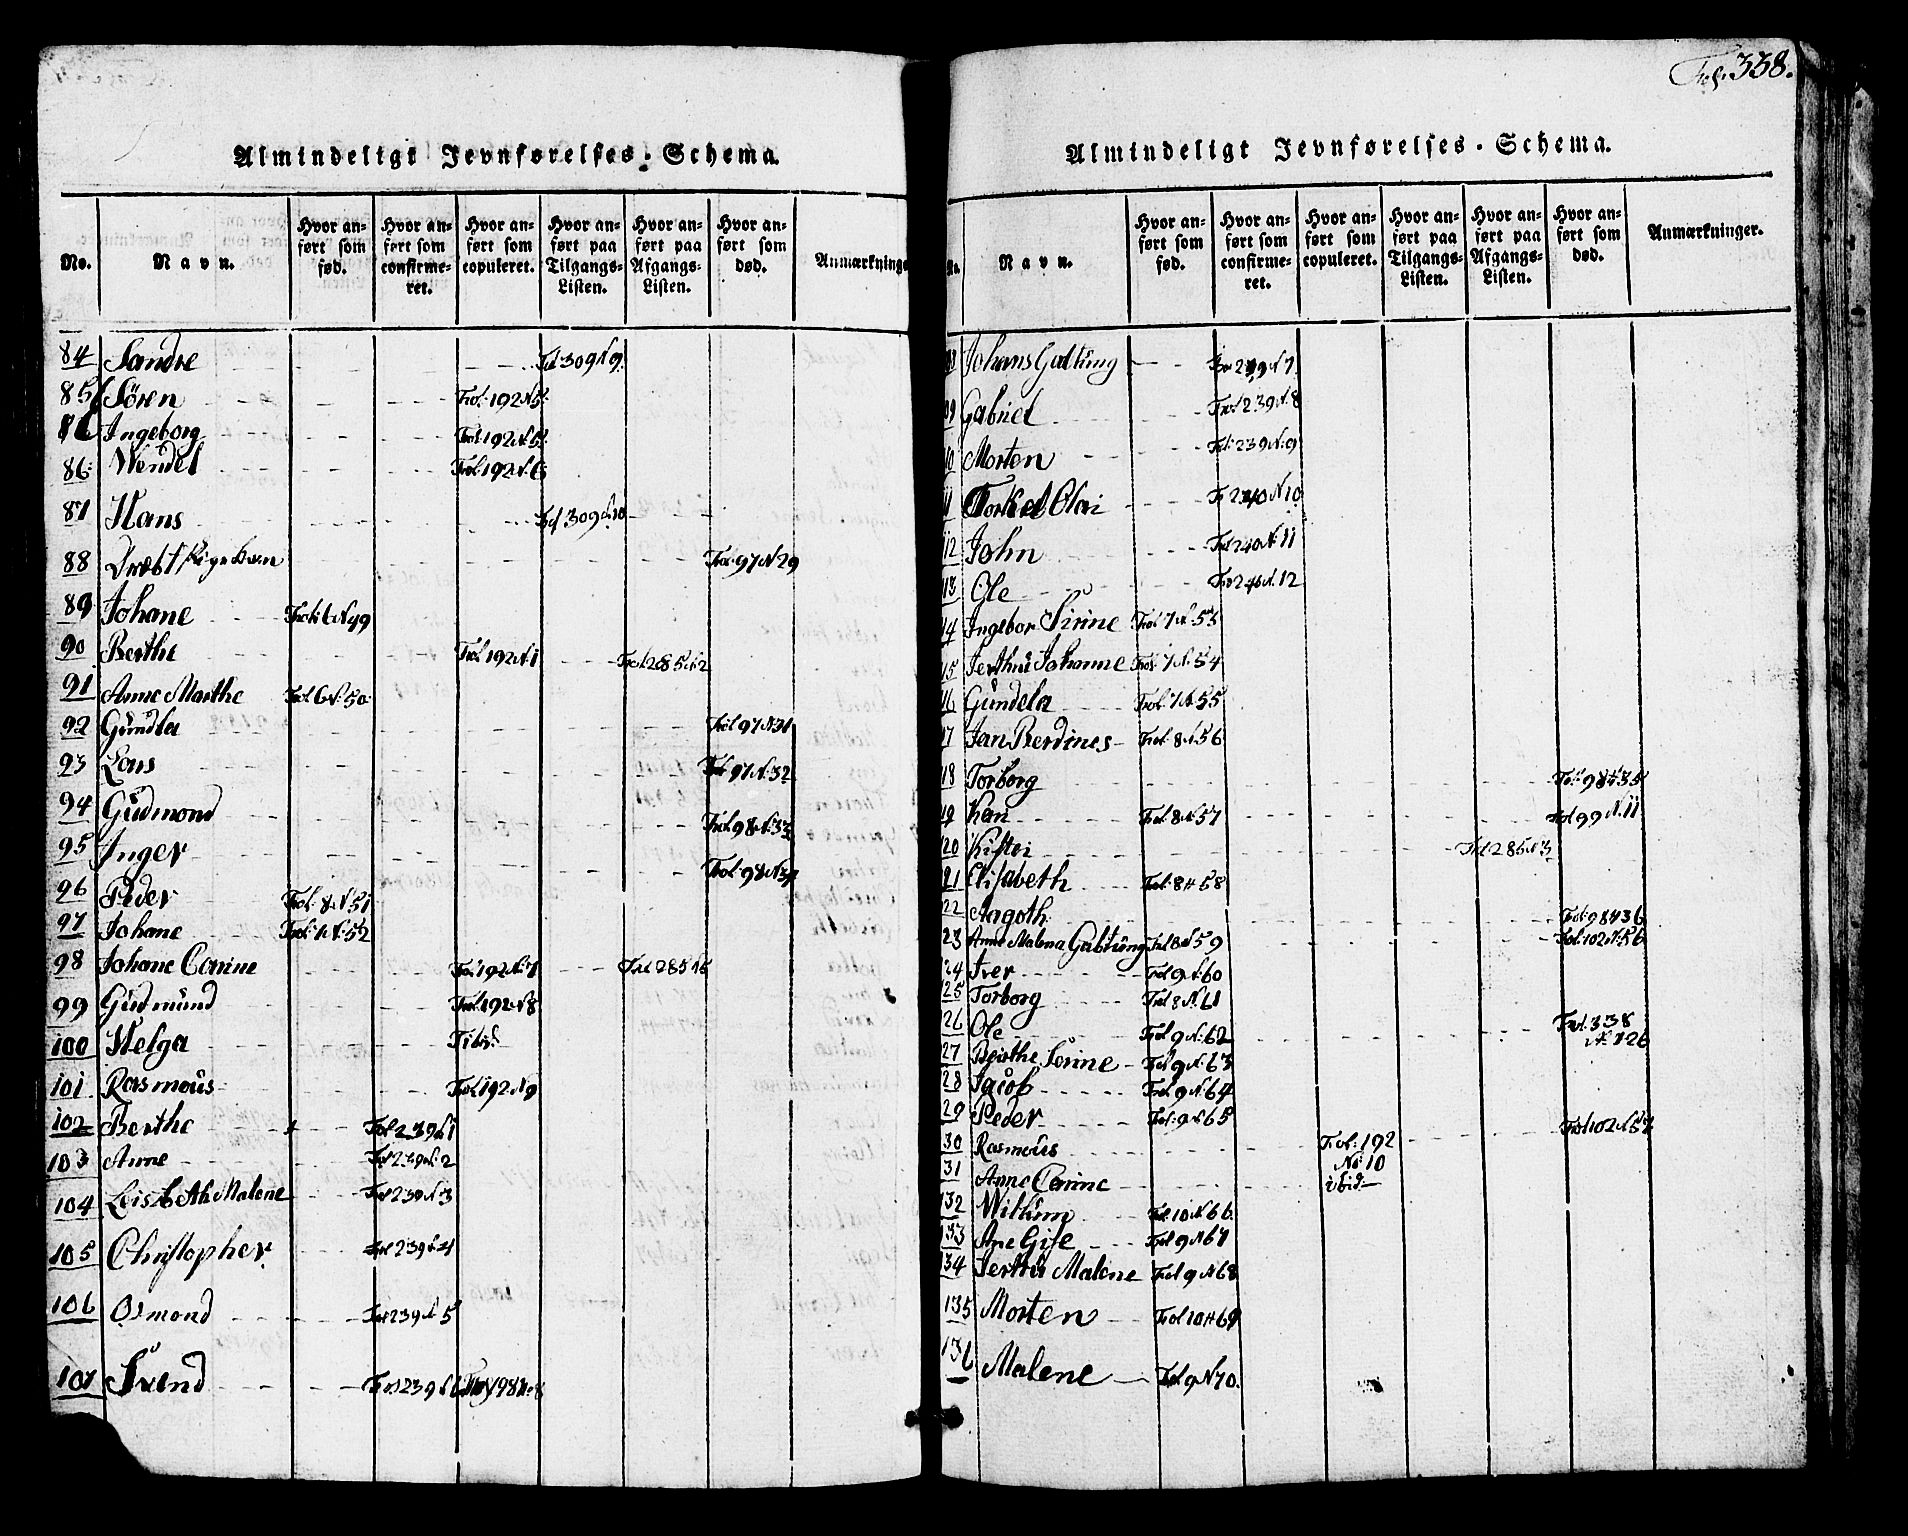 Fol. 338.
Almindeligt Jevnførelses-Schema.
No. Navn. Hvor anført som fød. Hvor anført som confirmeret. Hvor anført som copuleret. Hvor anført paa Tilgangs-Listen. Hvor anført paa Afgangs-Listen. Hvor anført som død. Anmærkninge
84 Sandre Fol 309 N 9.
85 Sören Fol. 192 N. 5.
Ingeborg Fol. 192 N. 5.
86. Wendel Fol. 192 N. 6
87 Hans Fol 309 N. 10
88 Fol. 97 N 29
89 Johane Fol. 6 N 49
90 Berthe Fol 192 N. 1 Fol 285 N. 2
91 Anne Marthe Fol 6 N. 50.
92 Gündla Fol 97 N 31
93 Lars Fol 97 N. 32
94 Güdmond Fol. 98 N. 33
95 Inger Fol. 98 N 34
96 Peder Fol. 8 N 51
97 Johane N. 52
98 Johane Carine Fol. 192 N. 7 Fol 285
99 Güdmünd Fol. 192 N. 8
100 Helga
101 Rasmous Fol. 192 N 9
102 Berthe Fol 239 N. 1
103 Anne Fol 239 N. 2
104 Leisbeth Malene Fol 239 N. 3
105 Christopher Fol 239 N. 4
106 Osmond Fol 239 N. 5
107 Svend Fol 239 N. 6
Almindeligt Jevnførelses-Schema.
No. Navn. Hvor anført som fød. Hvor anført som confirmeret. Hvor anført som copuleret. Hvor anført paa Tilgangs-Listen. Hvor anført paa Afgangs-Listen. Hvor anført som død. Anmærkninger.
Johans Galtung Fol 239 N 7
Gabriel Fol 239 N. 8
Morten Fol 239 N. 9
Torkel Olai Fol 240 N 10
12 John Fol 240 N. 11
13 Ole Fol 240 N. 12
14 Ingebor Sirine Fol 7 N. 53
15 Jerthrü Johanne Fol. 7 N. 54
16 Gündela Fol. 7 N. 55
17 Jan Berdines Fol. 8 N. 56
18 Torborg Fol. 98 N 35
19 Kari Fol. 8 N. 57 Fol 99 N. 11
20 Kistri Fol 286 N 3
21 Elisabeth Fol. 8 N 58
22 Aagoth Fol. 98 N 36
23 Anne Malena Fol 8 N. 59 Fol. 102 N. 56
24 Iver Fol 9 N. 60
25 Torborg Fol 8 N. 61
26 Ole Fol. 9 N. 62 Fol. 338
N. 126
27 Berthe Serine Fol 9 N. 63
28 Jacob Fol. 9 N. 64
29 Peder Fol. 9 N. 65 Fol 102 N 57
30 Rasmous Fol: 192
No: 10
31 Anne Carine ibid
132 Willum Fol. 10 N. 66.
133 Ane Gise Fol 9 N 67
134 Jerthrü Malene Fol 9 N 68
135 Morten Fol 10 N 69
136 Malene Fol. 9 N 70.